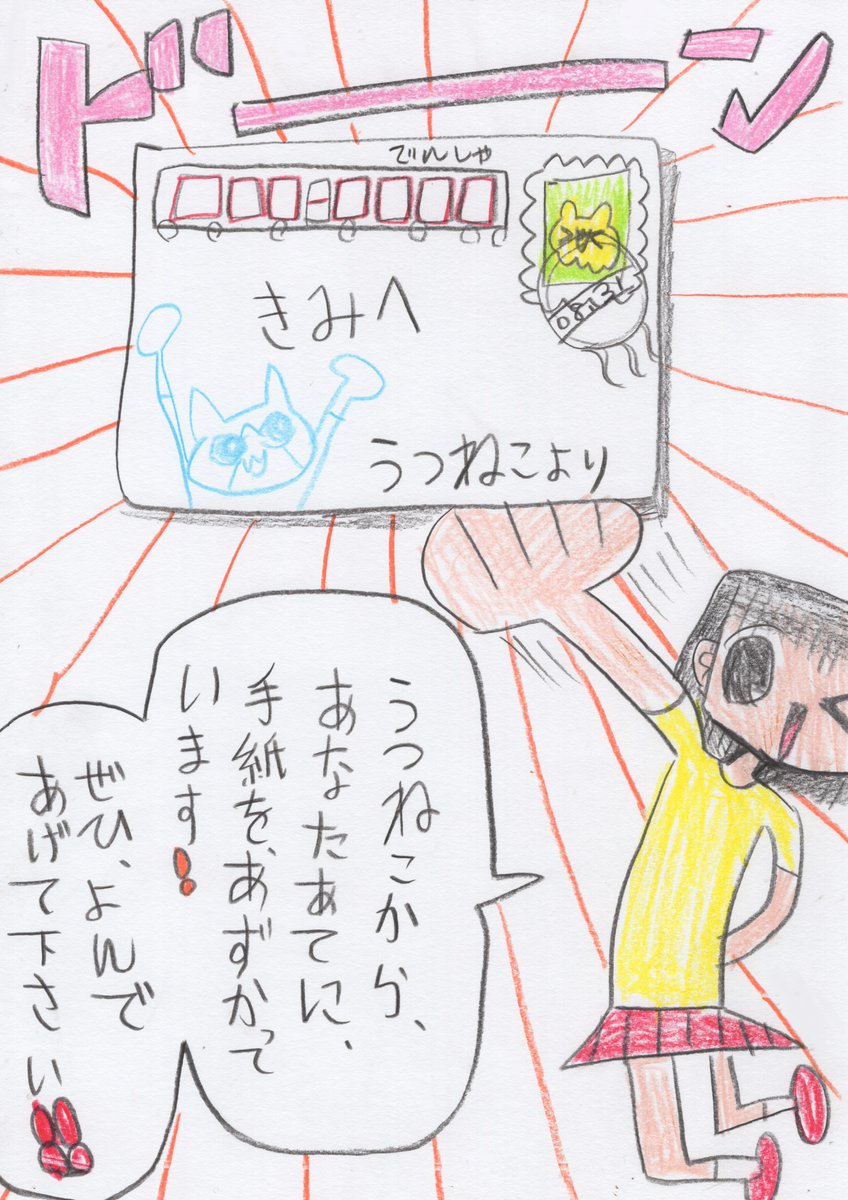 ドーン
でんしゃ
きみへ
うつねこより
うつねこから、
あなたあてに、
手紙を、あずかって
います!
ぜひ、よんで
あげて下さい!!